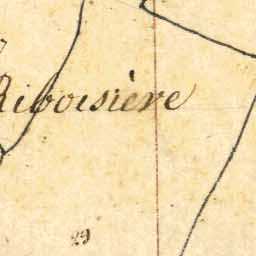 Riboisière
29